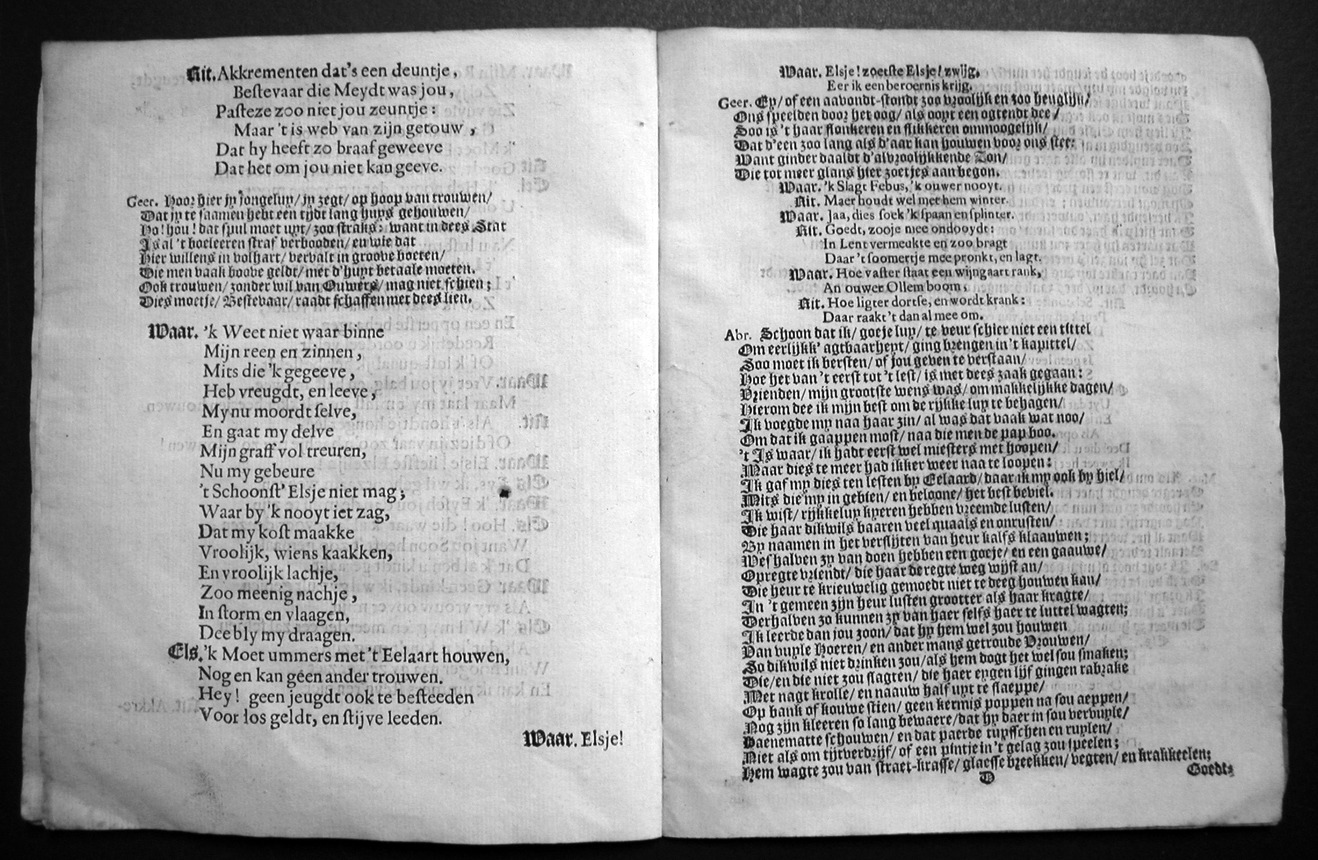 Rit. Akkrementen dat's een deuntje,
Bestevaar die Meydt was jou,
Pasteze zoo niet jou zeuntje:
Maar 't is web van zijn getouw,
Dat hy heeft zo braaf geweeve
Dat het om jou niet kan geeve.
Geer. Hoor hier jy jongeluy/ jy zegt/ op hoop van trouwen/
Dat jy te saamen hebt een tijdt lang huys gehouwen/
Ho! hou! dat spul moet uyt/ zoo straks: want in dees Stat
Is al 't boeleeren straf verbooden/ en wie dat
Hier willens in volhart/ vervalt in groove boeten/
Die men vaak boove geldt/ met d'huyt betaale moeten.
Ook trouwen/ zonder wil van Ouwers/ mag niet schien;
Dies moetje/ Bestevaar/ raadt schaffen met dees lien.
Waar. 'k Weet niet waar binne
Mijn reen en zinnen,
Mits die 'k gegeeve,
Heb vreugdt, en leeve,
My nu moordt selve,
En gaat my delve
Mijn graff vol treuren,
Nu my gebeure
't Schoonst' Elsje niet mag;
Waar by 'k nooyt iet zag,
Dat my kost maakke
Vroolijk, wiens kaakken,
En vroolijk lachje,
Zoo meenig nachje,
In storm en vlaagen,
Dee bly my draagen.
Els. 'k Moet ummers met 't Eelaart houwen,
Nog en kan geen ander trouwen.
Hey! geen jeugdt ook te besteeden
Voor los geldt, en stijve leeden.
Waar. Elsje!
Waar. Elsje! zoetste Elsje! zwijg,
Eer ik een beroernis krijg.
Geer. Ey/ of een aavondt-stondt zoo vroolijk en zoo heuglijn/
Ons speelden door het oog/ als ooyt een ogtendt dee/
Soo is 't haar flonkeren en flikkeren ommoogelijk/
Dat d'een zoo lang als d'aar kan houwen voor ons stee:
Want ginder daaldt d'alvroolijkkende Zon/
Die tot meer glans hier zoetjes aan begon.
Waar. 'k Slagt Febus, 'k ouwer nooyt.
Rit. Maer houdt wel mee hem winter.
Waar. Jaa, dies soek 'k spaan en splinter.
Rit. Goedt, zooje mee ondooydt:
In Lent vermeakte en zoo bragt
Daar 't soomertje mee pronkt, en lagt.
Waar. Hoe vaster staat een wijngaart rank,
An ouwer Ollem boom,
Rit. Hoe ligter dortse, en wordt krank:
Daar raakt 't dan al mee om.
Abr. Schoon dat ik/ goeje luy/ te veur schier niet een tittel
Om eerlijkk' agtbaarheyt/ ging brengen in 't kapittel/
Soo moet ik bersten/ of jou geven te verstaan/
Hoe het van 't eerst tot 't lest/ is met dees zaak gegaan:
Vrienden/ mijn grootste wens was/ om makkelijkke dagen/
Hierom dee ik mijn best om de rijkke luy te behagen/
Ik voegde my naa haar zin/ al was dat vaak wat noo/
Om dat ik gaappen most/ naa die men de pap boo.
't Is waar/ ik hadt eerst wel miesters met hoopen/
Maar dies te meer had ikker weer naa te loopen:
Ik gaf my dies ten lesten by Eelaard/ daar ik my ook by hiel/
Mits die my in gebien/ en beloone/ het best beviel.
Ik wist/ rijkkeluy kyeren hebben vreemde lusten/
Die haar dikwils baaren veel quaals en onrusten/
By naamen in het verslijten van heur kalfs klaauwen;
Weshalven zy van doen hebben een goeje/ en een gaauwe/
Opregte vriendt/ die haar de regte weg wijst an/
Die heur te krieuwelig gemoedt niet te deeg houwen kan/
In 't gemeen zijn heur lusten grootter als haar kragte/
Derhalven zo kunnen zy van haer selfs haer te luttel wagten;
Ik leerde dan jou zoon/ dat hy hem wel zou houwen
Van vuyle Hoeren/ en ander mans getroude Vrouwen/
So dikwils niet drinken zou/ als hem dogt het wel sou smaken;
Die/ en die niet zou slagten/ die haer eygen lijf gingen rabrake
Met nagt krolle/ en naauw half uyt te slaeppe/
Op bank of kouwe stien/ geen kermis poppen na sou aeppen/
Nog zijn kleeren so lang bewaere/ dat hy daer in sou vervuyle/
Daenematte schouwen/ en dat paerde tuysschen en ruylen/
Niet als om tijtverdrijf/ of een pintje in 't gelag zou speelen;
Hem wagte zou van straet-krasse/ glaesse breekken/ vegten/ en krakkeelen;
D
Goedt